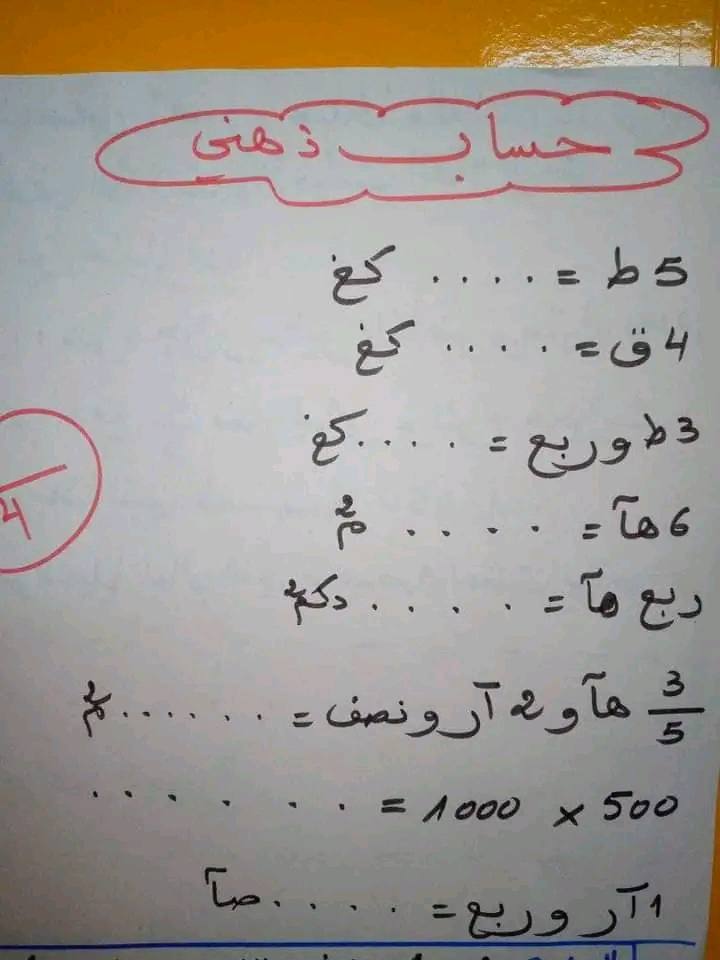 حساب ذهني
5 ط = .... كغ
4 ق = .... كغ
3 ط وربع = .... كغ
6 هآ = .... م²
ربع هآ = .... دكم²
3/5 هآ و 2 آر ونصف = ...... م²
500 × 1000 = ......
1 آر وربع = .... صآ
4